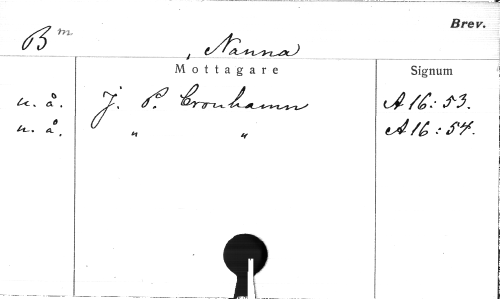 Brev.
Bm
, Nanna
Mottagare Signum
u. å. J. P. Cronhamn A 16: 53.
u. å. " " A 16: 54.